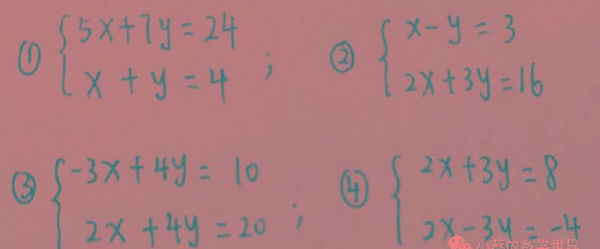 ① { 5x+7y=24
x+y=4 ;
② { x-y=3
2x+3y=16
③ { -3x+4y=10
2x+4y=20 ;
④ { 2x+3y=8
2x-3y=-4